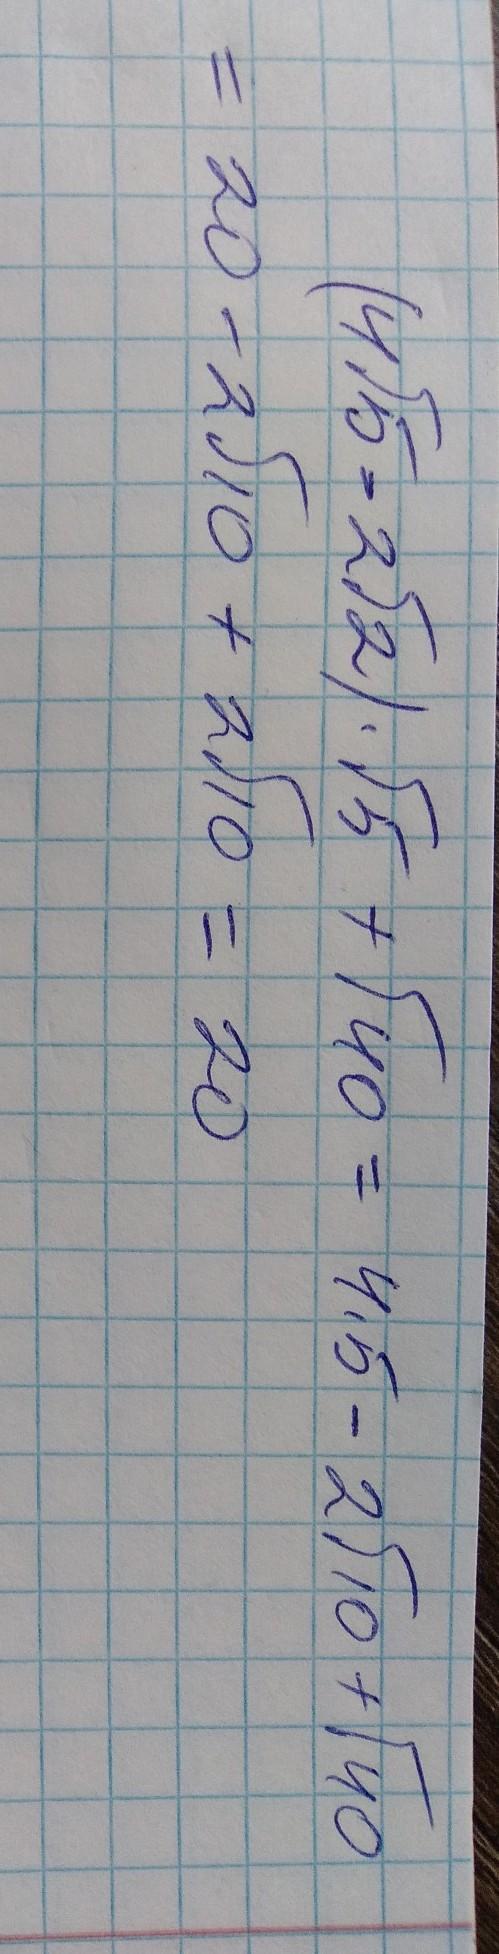 (4√5 - 2√2) · √5 + √40 = 4·5 - 2√10 + √40
= 20 - 2√10 + 2√10 = 20